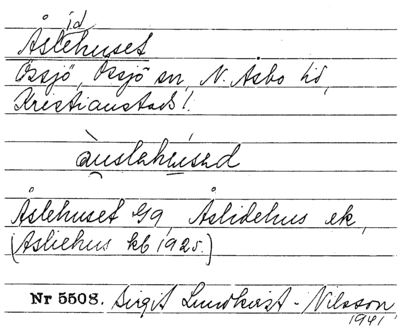 id
Åslehuset
Össjö, Össjö sn, N. Åsbo hd,
Kristianstads l.
àuslehúsəd
Åslehuset Gg, Åslidehus ek,
(Asliehus kb 1925.)
Nr 5508. Birgit Lundkvist-Nilsson
1941